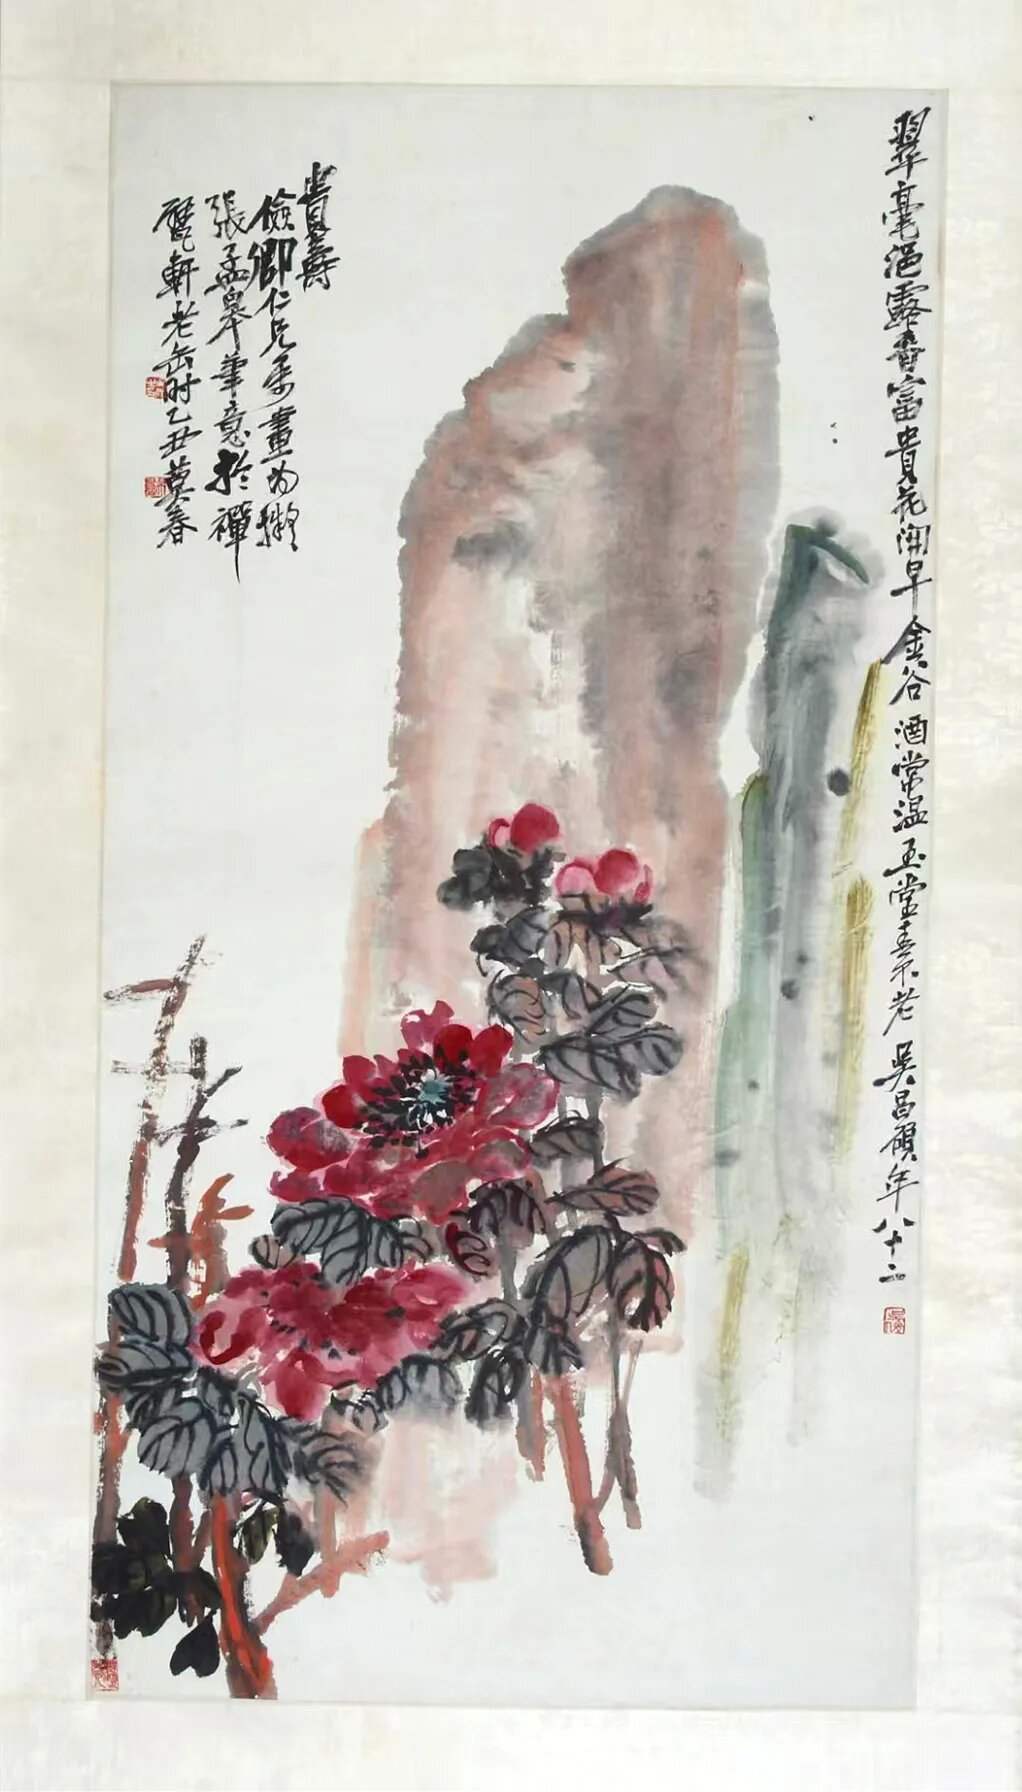 翠毫浥露香富貴花開早金谷酒常温玉堂春不老吳昌碩年八十二
貴壽
儉卿仁兄屬畫為擬
張孟皋筆意於禪
甓軒老缶時乙丑莫春